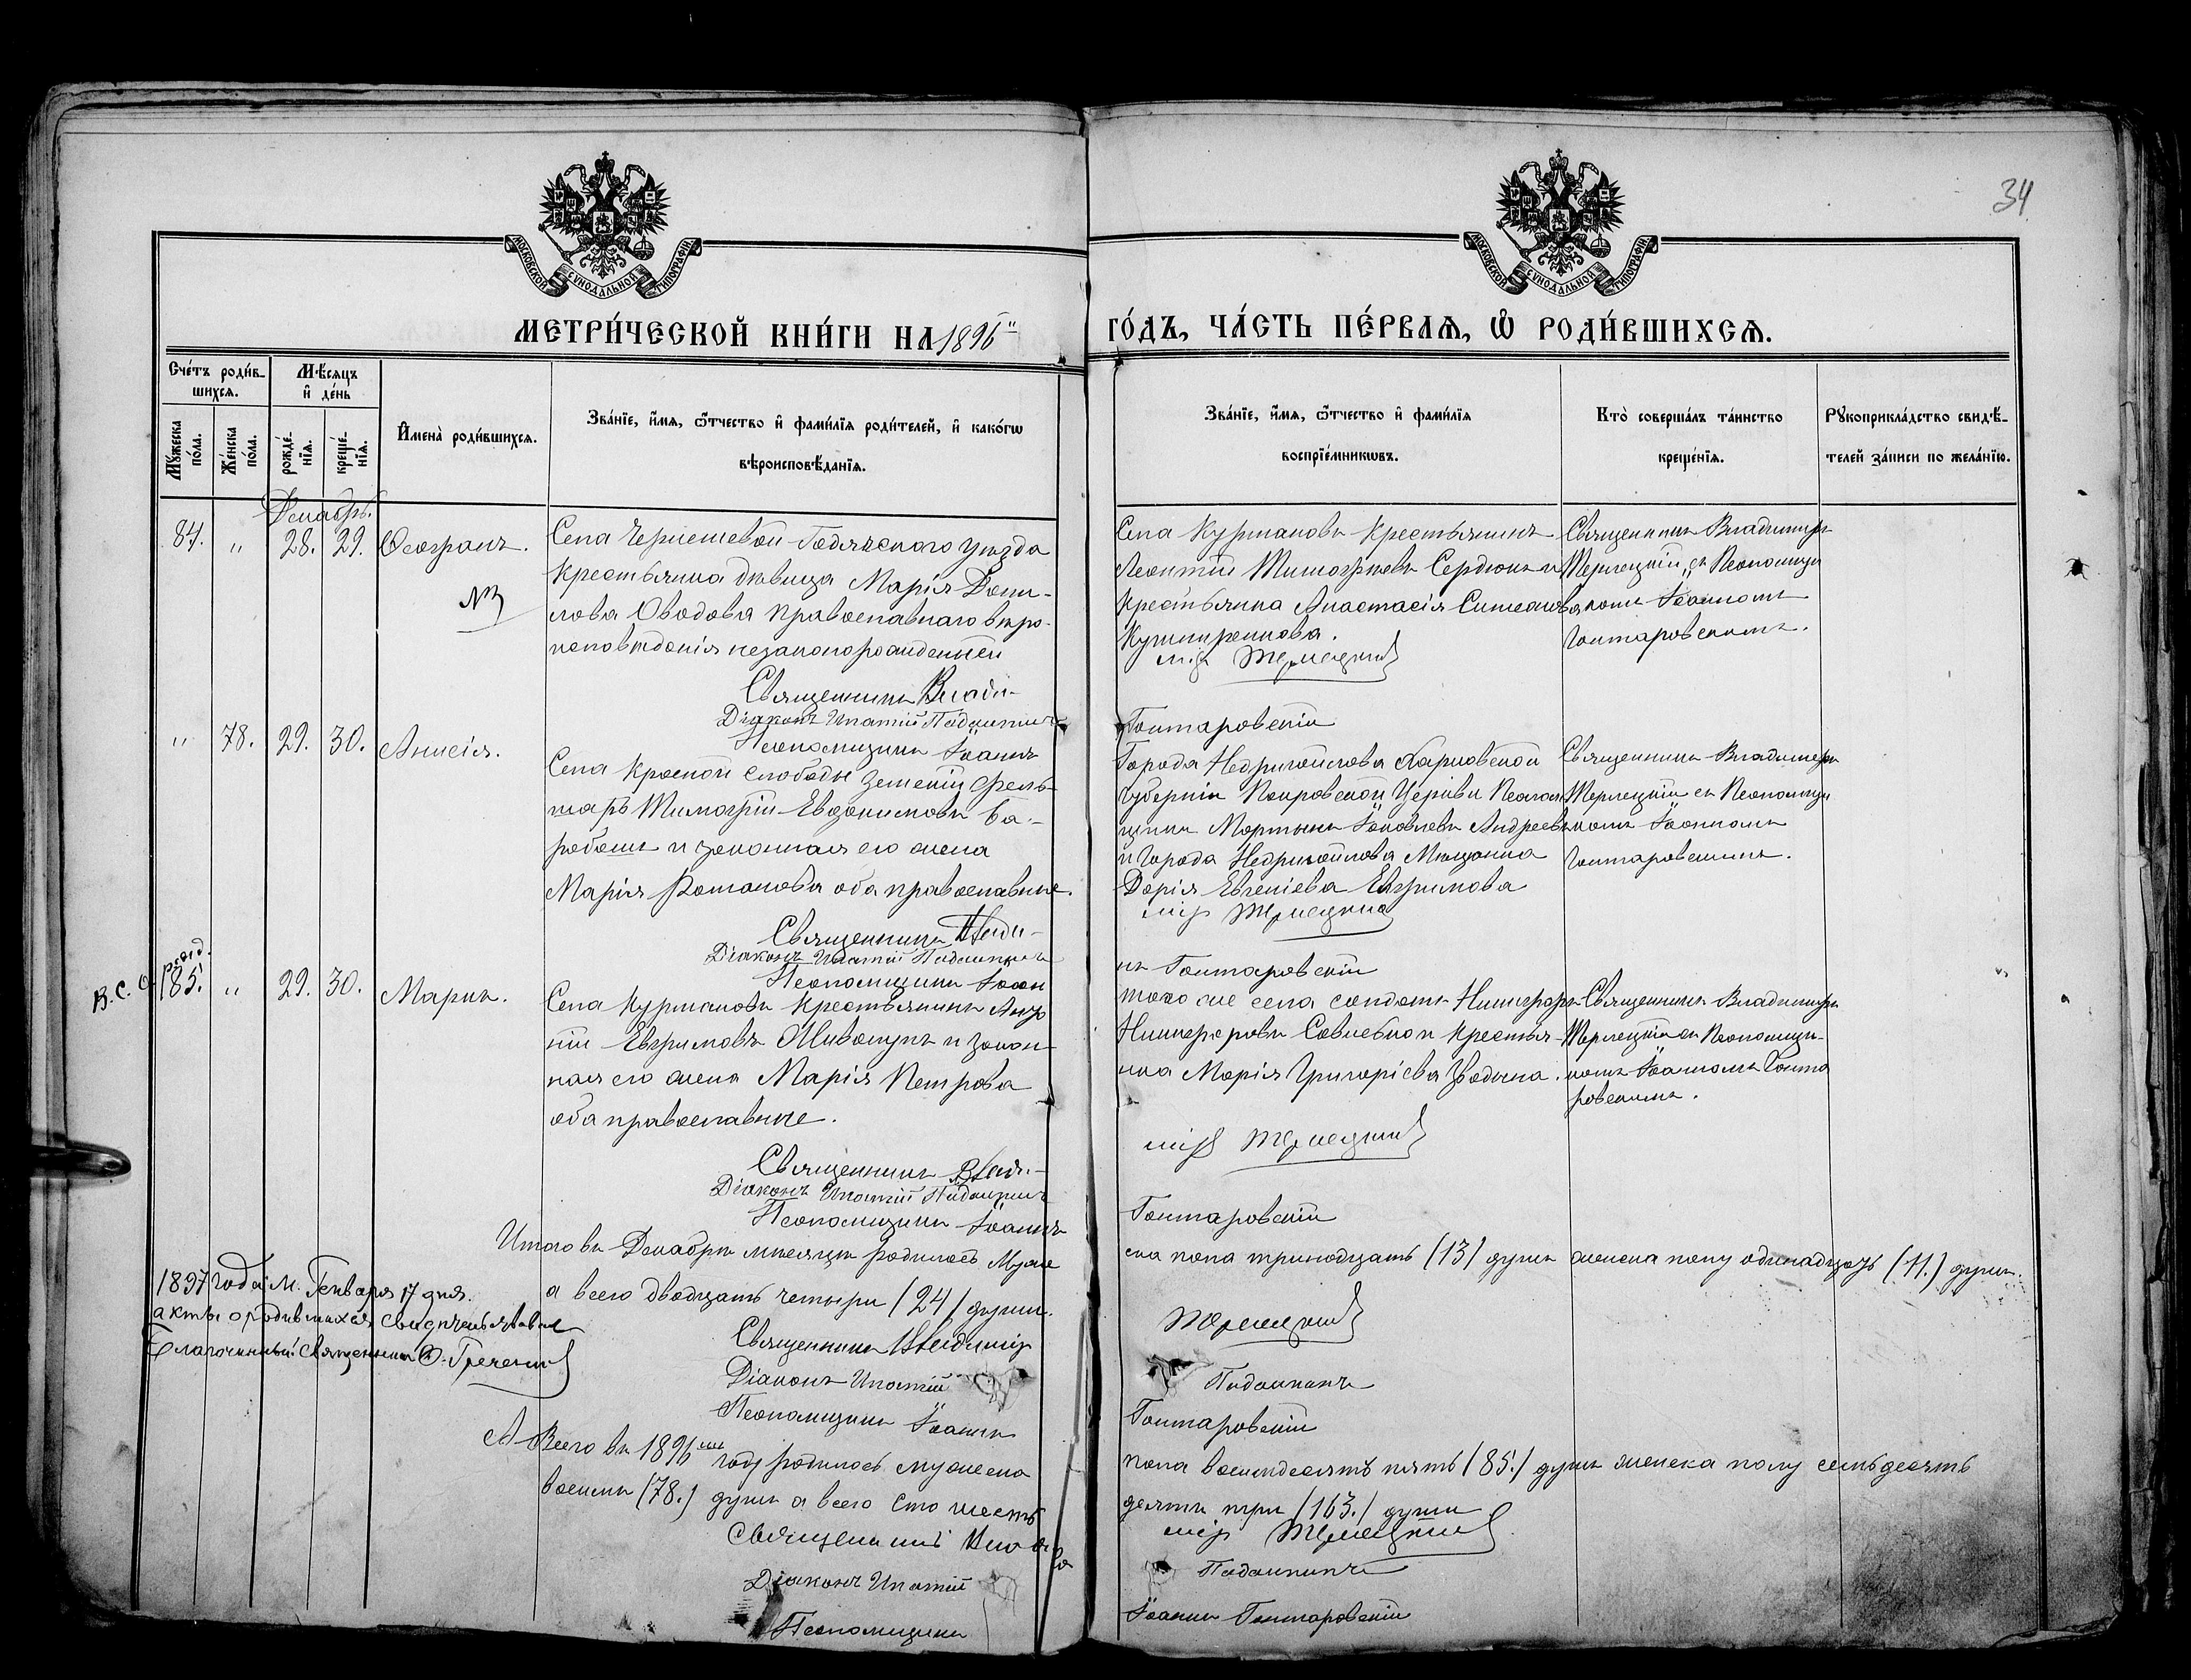 34
МОСКОВСКОЙ СУНОДАЛЬНОЙ ТИПОГРАФІИ
МОСКОВСКОЙ СУНОДАЛЬНОЙ ТИПОГРАФІИ
МЕТРИ́ЧЕСКОЙ КНИ́ГИ НА 1896й
ГО́ДЪ, ЧА́СТЬ ПЕ́РВАѦ, Ѡ РОДИ́ВШИХСѦ.
Сче́тъ роди́в-
шихсѧ.
Мѣсѧцъ
и҆ де́нь
Мꙋжеска по́ла.
Же́нска по́ла.
рожде́-
нїѧ.
креще́-
нїѧ.
И҆мена̀ роди́вшихсѧ.
Зва́нїе, и҆́мѧ, ѻ҆́тчество и҆ фами́лїѧ роди́телей, и҆ како́гѡ
вѣроисповѣ́данїѧ.
Зва́нїе, и҆́мѧ, ѻ҆́тчество и҆ фами́лїѧ
воспрїе́мникѡвъ.
Кто̀ соверша́лъ та́инство
креще́нїѧ.
Рꙋкоприкла́дство свидѣ́-
телей за́писи по жела́нїю.
Декабрь.
84. " 28. 29. Ѳеофанъ.
Села Гадячского уезда
крестьянка девица Марія Дани-
лова Оводова православнаго веро-
исповеданія незаконорожденный
Священникъ Влади-
Діаконъ Ипатій
Псаломщикъ Іоаннъ
Села Курмановъ крестьянинъ
Леонтій Тимофеевъ Сердюкъ и
крестьянка Анастасія Симеонова
міръ Терлецкій
Гонтаровскій
Священникъ Владиміръ
Терлецкій съ Псаломщи
комъ Іоанномъ
Гонтаровскимъ.
" 78. 29. 30. Анисія.
Села Красной слободы Земскій фель-
шаръ Тимофій Евдокимовъ Ба-
рабашъ и законная его жена
Марія Романова оба православные.
Священникъ Влади-
Діаконъ Ипатій
Псаломщикъ Іоан
Города Недригайлова Харковской
губерніи Покровской Церкви Псалом
щикъ Мартынъ Іаковлевъ Андреевъ
и города Недригайлова Мещанка
Дарія Евгеніева Ефимова
міръ Терлецкій
нъ Гонтаровскій
Священникъ Владиміръ
Терлецкій съ Псаломщи
комъ Іоанномъ
Гонтаровскимъ.
В. С.
85. " 29. 30. Маркъ.
Села Курмановъ крестьянинъ
Ефимовъ и закон-
ная его жена Марія Петрова
оба православные.
Священникъ Влади-
Діаконъ Ипатій
Псаломщикъ Іоаннъ
того же села солдатъ Никифоръ
Никифоровъ и крестья-
нка Марія Григоріева
міръ Терлецкій
Гонтаровскій
Священникъ Владиміръ
Терлецкій съ Псаломщи-
комъ Іоанномъ Гонта
ровскимъ.
Итого въ Декабре месяце родилось муже
ска пола тринадцать (13) душъ женска полу одинадцать (11.) душъ.
а всего двадцать четыри (24) души.
Священникъ Владиміръ
Терлецкій
Діаконъ Ипатій
Псаломщикъ Іоаннъ
Гонтаровскій
1897 года м. Генваря 17 дня.
акты о родившихся свидетельствовал
Благочинный Священникъ
А Всего въ 1896мъ году родилось мужеска
пола восемдесять пять (85.) душъ женска полу семьдесять
восемь (78.) душъ а всего сто шесть
десятъ три (163.) души
Священникъ Влади
міръ Терлецкій
Діаконъ Ипатій
Псаломщикъ
Іоаннъ Гонтаровскій